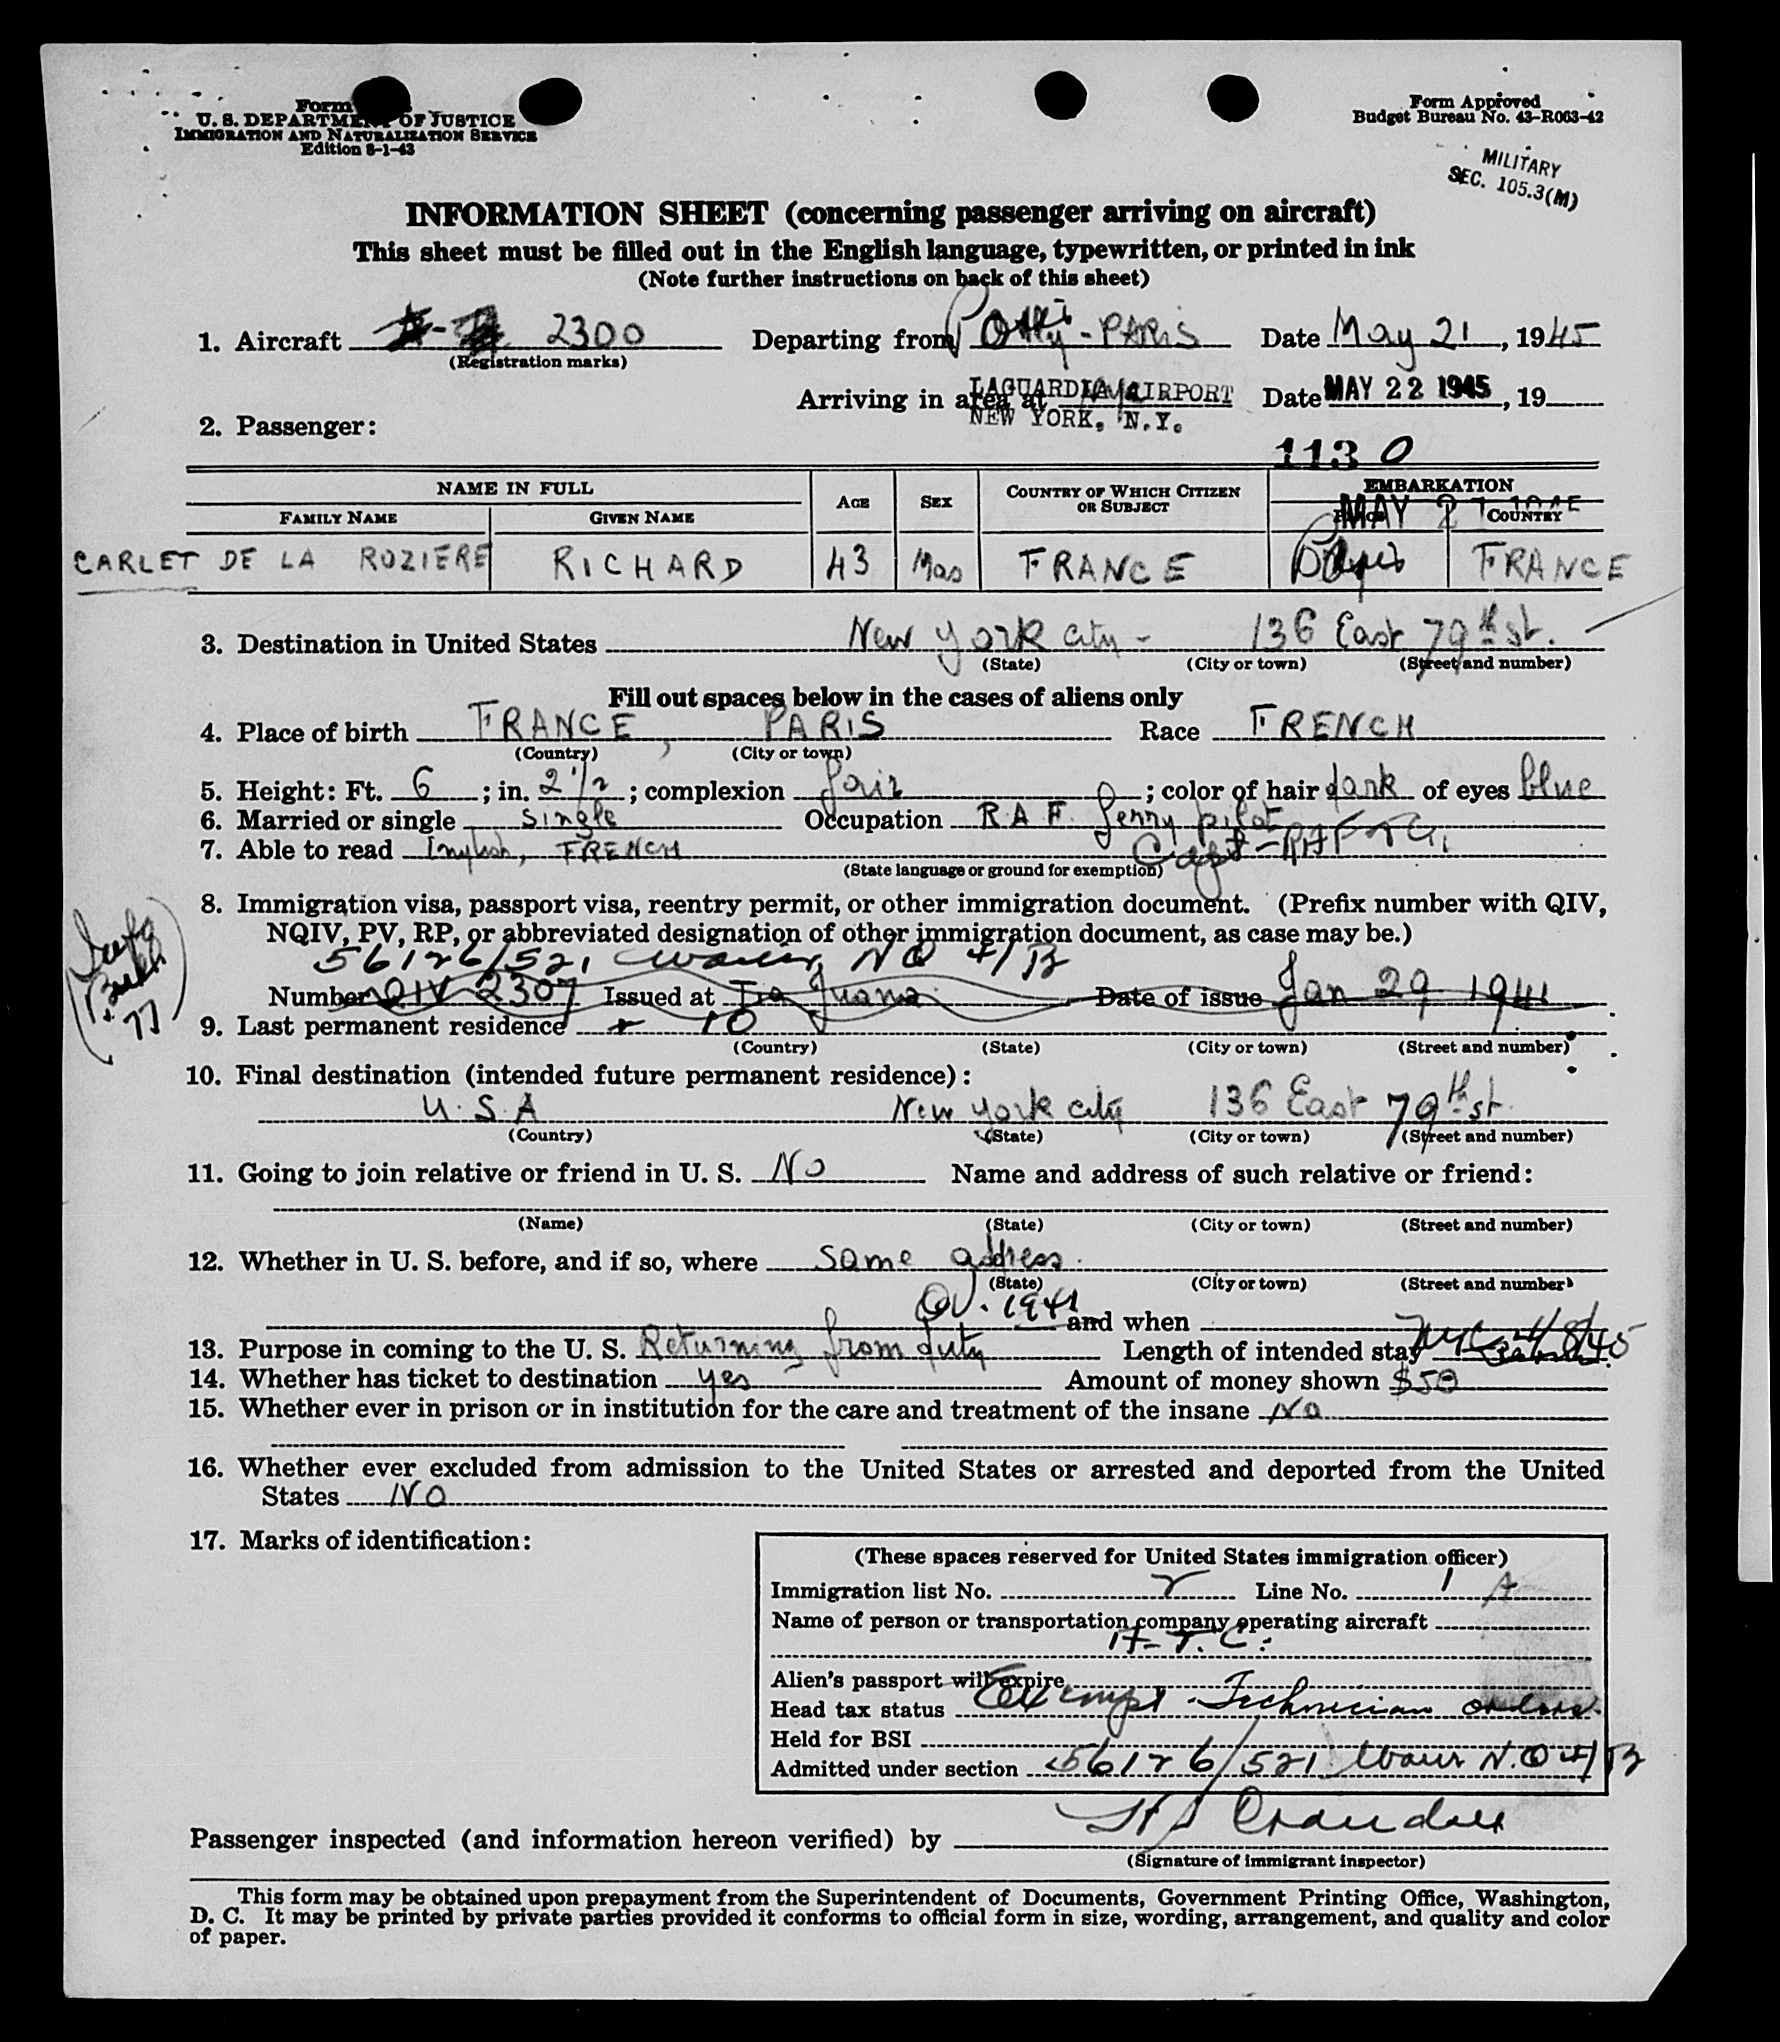 Form
U. S. DEPARTMENT OF JUSTICE
IMMIGRATION AND NATURALIZATION SERVICE
Edition 8-1-43
Form Approved
Budget Bureau No. 43-R063-42
MILITARY
SEC. 105.3(M)
INFORMATION SHEET (concerning passenger arriving on aircraft)
This sheet must be filled out in the English language, typewritten, or printed in ink
(Note further instructions on back of this sheet)
1. Aircraft 2300 Departing from Orly - PARIS Date May 21, 1945
(Registration marks)
Arriving in area at LAGUARDIA AIRPORT Date MAY 22 1945, 19
NEW YORK, N.Y.
2. Passenger:
1130
NAME IN FULL AGE SEX COUNTRY OF WHICH CITIZEN OR SUBJECT EMBARKATION
FAMILY NAME GIVEN NAME MAY 2 1945 COUNTRY
CARLET DE LA ROZIERE RICHARD 43 Mas FRANCE Paris FRANCE
3. Destination in United States New York city - 136 East 79th st.
(State) (City or town) (Street and number)
Fill out spaces below in the cases of aliens only
4. Place of birth FRANCE, PARIS Race FRENCH
(Country) (City or town)
5. Height: Ft. 6; in. 2 1/2; complexion fair; color of hair dark of eyes blue
6. Married or single single Occupation R.A.F. ferry pilot
7. Able to read English, FRENCH Capt - RAF
(State language or ground for exemption)
8. Immigration visa, passport visa, reentry permit, or other immigration document. (Prefix number with QIV,
NQIV, PV, RP, or abbreviated designation of other immigration document, as case may be.)
56126/521 Waiver NO 4/B
Number QIV 2307 Issued at Tia Juana Date of issue Jan 29 1941
9. Last permanent residence 10
(Country) (State) (City or town) (Street and number)
77
10. Final destination (intended future permanent residence):
U.S.A New York city 136 East 79th st.
(Country) (State) (City or town) (Street and number)
11. Going to join relative or friend in U. S. No Name and address of such relative or friend:
(Name) (State) (City or town) (Street and number)
12. Whether in U. S. before, and if so, where same address.
(State) (City or town) (Street and number)
QIV. 1941 and when
13. Purpose in coming to the U. S. Returning from duty Length of intended stay
NYC 4/8/45
14. Whether has ticket to destination yes Amount of money shown $50
15. Whether ever in prison or in institution for the care and treatment of the insane No
16. Whether ever excluded from admission to the United States or arrested and deported from the United
States NO
17. Marks of identification:
(These spaces reserved for United States immigration officer)
Immigration list No. Line No. 1 A
Name of person or transportation company operating aircraft
A.T.C.
Alien's passport will expire
Head tax status Exempt - Technician orders
Held for BSI
Admitted under section 56126/521 Waiver N.O 4/B
Passenger inspected (and information hereon verified) by H S Crandall
(Signature of immigrant inspector)
This form may be obtained upon prepayment from the Superintendent of Documents, Government Printing Office, Washington,
D. C. It may be printed by private parties provided it conforms to official form in size, wording, arrangement, and quality and color
of paper.